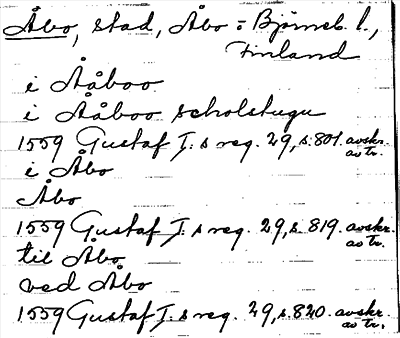 Åbo, stad, Åbo = Björneb. l.,
Finland
i Ååboo
i Ååboo scholstugu
1559 Gustaf I:s reg. 29, s. 801. avskr. av tr.
i Åbo
Åbo
1559 Gustaf I:s reg. 29, s. 819. avskr. av tr.
til Åbo
ved Åbo
1559 Gustaf I:s reg. 29, s. 820. avskr. av tr.